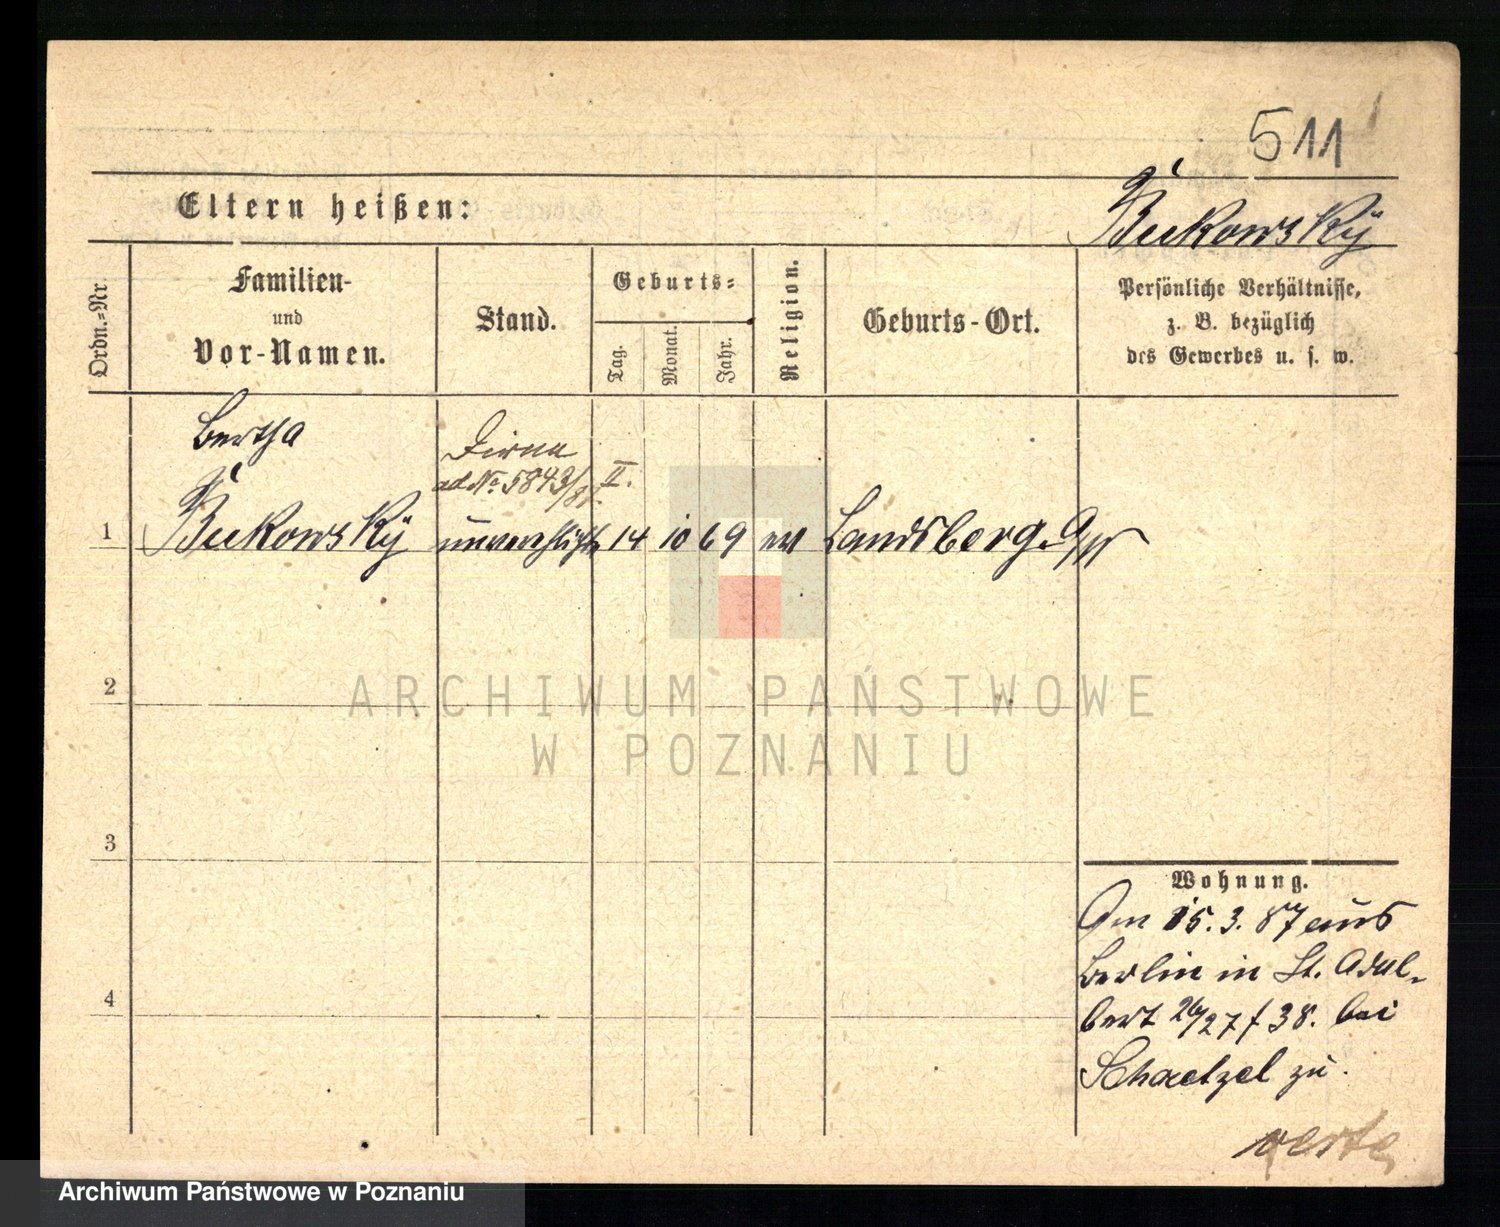 511
Eltern heißen:
Bukowsky
Ordn.-Nr.
Familien-
und
Vor-Namen.
Stand.
Geburts-
Tag.
Monat.
Jahr.
Religion.
Geburts-Ort.
Persönliche Verhältnisse,
z. B. bezüglich
des Gewerbes u. s. w.
Bertha
Dirne
ad No. 5843/87. II.
1 Bukowsky unverehlicht 14 10 69 ev Landsberg
2
3
4
ARCHIWUM PAŃSTWOWE
W POZNANIU
Wohnung.
Am 15.3.87 aus
Berlin in St. Adal-
bert 26/27 f 38. bei
Schaetzel zu.
verte
Archiwum Państwowe w Poznaniu